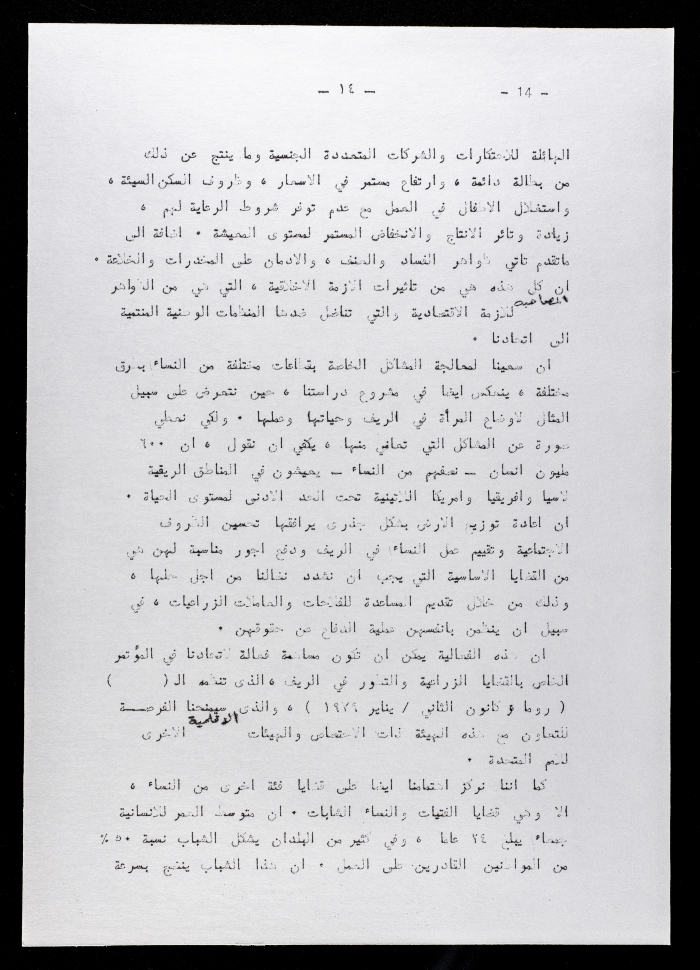 - ١٤ - - 14 -
الهائلة للاحتكارات والشركات المتعددة الجنسية وما ينتج عن ذلك
من بطالة دائمة ، وارتفاع مستمر في الاسعار ، وظروف السكن السيئة ،
واستغلال الاطفال في العمل مع عدم توفر شروط الرعاية لهم ،
زيادة وتائر الانتاج والانخفاض المستمر لمستوى المعيشة . اضافة الى
ماتقدم تاتي ظواهر الفساد والعنف ، والادمان على المخدرات والخلاعة .
ان كل هذه هي من تاثيرات الازمة الاخلاقية ، التي هي من الظواهر
المصاحبة للازمة الاقتصادية والتي تناضل ضدها المنظمات الوطنية المنتمية
الى اتحادنا .
ان سعينا لمعالجة المشاكل الخاصة بقطاعات مختلفة من النساء بطرق
مختلفة ، ينعكس ايضا في مشروع دراستنا ، حين نتعرض على سبيل
المثال لاوضاع المرأة في الريف وحياتها وعملها . ولكي نعطي
صورة عن المشاكل التي تعاني منها ، يكفي ان نقول ، ان ٦٠٠
مليون انسان - نصفهم من النساء - يعيشون في المناطق الريفية
لاسيا وافريقيا وامريكا اللاتينية تحت الحد الادنى لمستوى الحياة .
ان اعادة توزيع الارض بشكل جذرى يرافقها تحسين الظروف
الاجتماعية وتقييم عمل النساء في الريف ودفع اجور مناسبة لهن هي
من القضايا الاساسية التي يجب ان نشدد نضالنا من اجل حلها ،
وذلك من خلال تقديم المساعدة للفلاحات والعاملات الزراعيات ، في
سبيل ان ينظمن بانفسهن عملية الدفاع عن حقوقهن .
ان هذه الفعالية يمكن ان تكون مساهمة فعالة لاتحادنا في المؤتمر
الخاص بالقضايا الزراعية والتطور في الريف ، الذى تنظمه الـ ( )
( روما ، كانون الثاني / يناير ١٩٧٩ ) ، والذى سيمنحنا الفرصـــة
للتعاون مع هذه الهيئة ذات الاختصاص والهيئات الاقليمية الاخرى
للامم المتحدة .
كما اننا نركز اهتمامنا ايضا على قضايا فئة اخرى من النساء ،
الا وهي قضايا الفتيات والنساء الشابات . ان متوسط العمر للانسانية
جمعاء يبلغ ٢٤ عاما ، وفي كثير من البلدان يشكل الشباب نسبة ٥٠٪
من المواطنين القادرين على العمل . ان هذا الشباب ينضج بسرعة